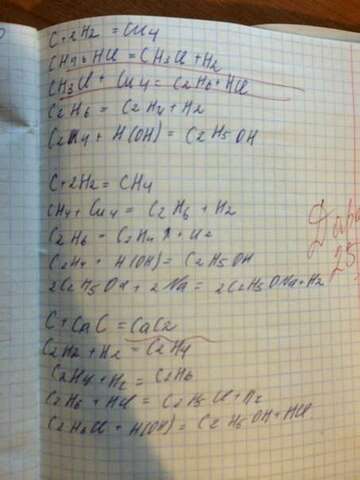 C+2H2 = CH4
CH4+HCl = CH3Cl+H2
CH3Cl + CH4 = C2H6+HCl
C2H6 = C2H4+H2
C2H4 + H(OH) = C2H5OH
C+2H2= CH4
CH4+CH4 = C2H6 + H2
C2H6 = C2H4 + H2
C2H4 + H(OH) = C2H5OH
2C2H5OH + 2Na = 2C2H5ONa+H2
C+CaC = CaC2
C2H2+H2 = C2H4
C2H4+H2 = C2H6
C2H6 + HCl = C2H5Cl+H2
C2H5Cl + H(OH) = C2H5OH+HCl